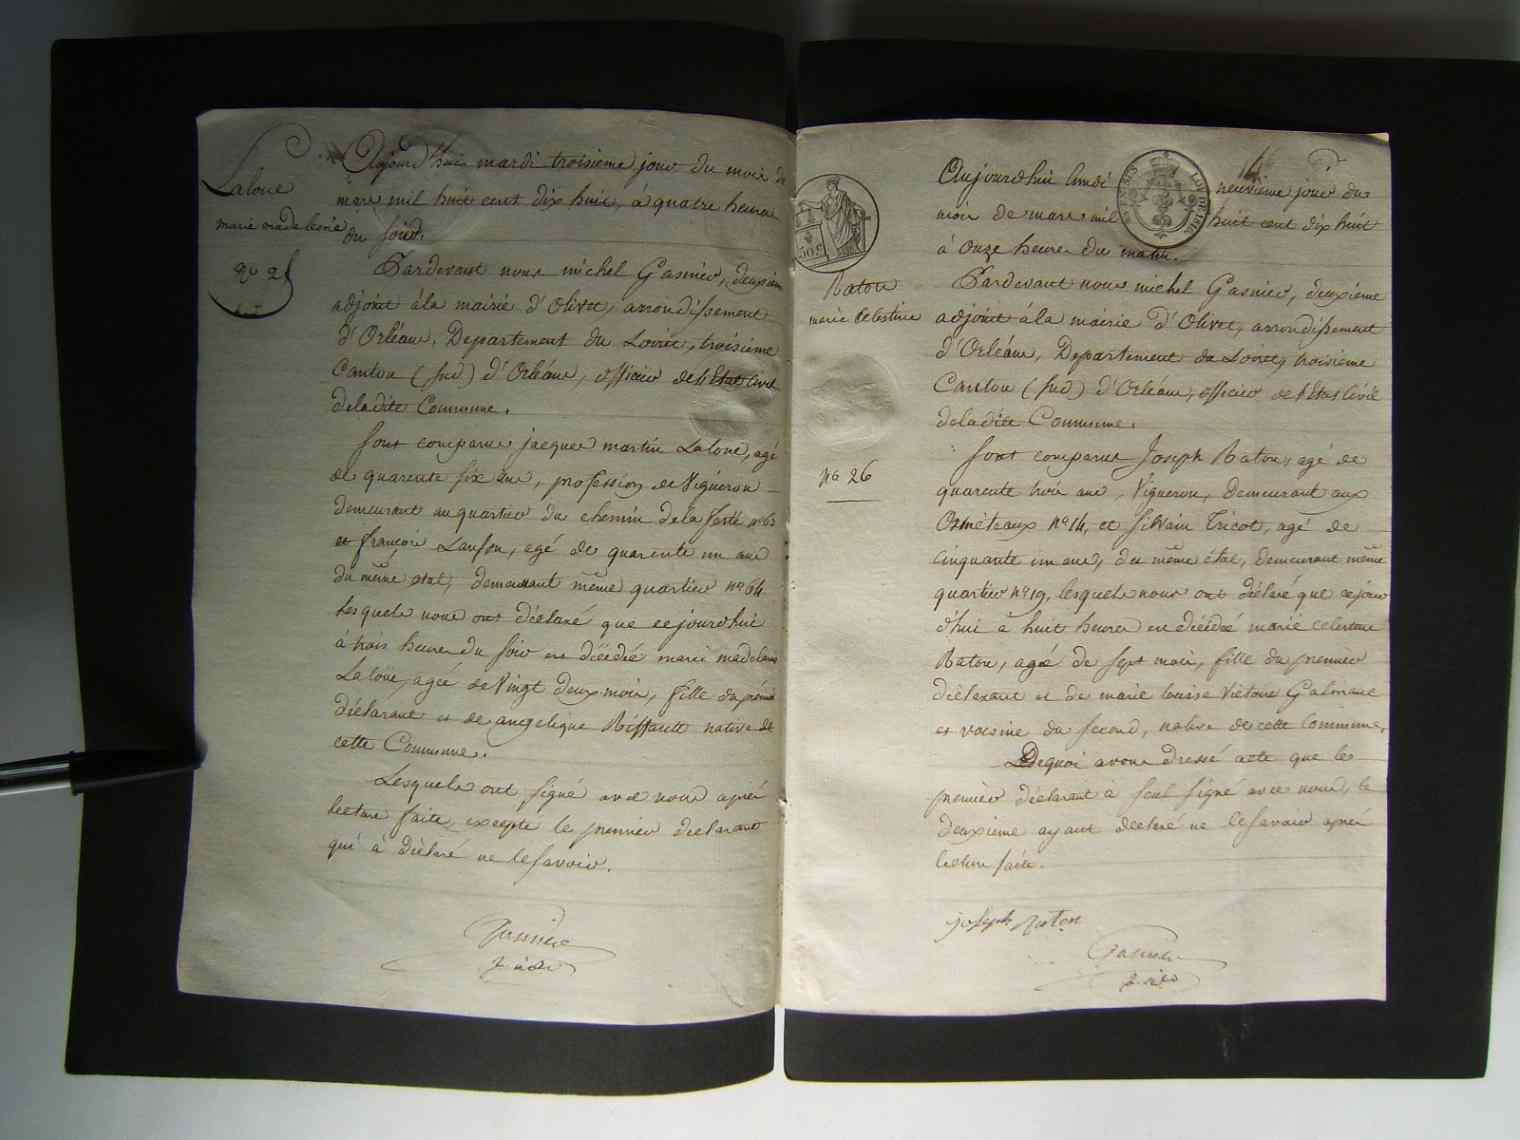 Laloue
marie madeleine
No 25
Aujourd'huis mardi troisieme jour du mois de
mars mil huit cent dix huit, à quatre heures
du soir.
Pardevant nous michel Gasnier, deuxieme
adjoint àla mairie d'Olivet, arrondissement
d'Orléans, Departement du Loiret, troisieme
Canton (sud) d'Orléans, officier de l'Etat Civil
deladite Commune.
sont comparus jacques martin Laloue, agé
de quarente six ans, profession de Vigneron
demeurant auquartier du chemin dela ferté no 63
et françois Lanson, agé de quarente un ans
du même état, demeurant même quartier no 64
Lesquels nous ont déclaré que cejourdhui
à trois heures du soir est décédée marie madelaine
Laloüe, agée de Vingt deux mois, fille du premier
déclarant et de angelique Riffault native de
cette Commune.
Lesquels ont signé avec nous après
lecture faite, excepté le premier déclarant
qui à déclaré ne lesavoir.
Gasnier
Raton
marie celestine
No 26
Aujourdhui lundi neuvième jour du
mois de mars mil huit cent dix huit
à onze heures du matin.
Pardevant nous michel Gasnier, deuxième
adjoint àla mairie d'Olivet, arrondissement
d'Orléans, Departement du Loiret, troisieme
Canton (sud) d'Orléans, officier de l'Etat Civil
deladite Commune.
sont comparus Joseph Raton, agé de
quarente trois ans, Vigneron, demeurant aux
Ormeteaux no 14, et silvain Tricot, agé de
cinquante un ans, du même état, demeurant même
quartier no 19, lesquels nous ont déclaré que cejour
d'hui à huit heures est décédée marie celestine
Raton, agée de sept mois, fille du premier
déclarant et de marie louise Victoire
et voisine du second, native de cette Commune.
Dequoi avons dressé acte que le
premier déclarant à seul signé avec nous, le
deuxieme ayant déclaré ne lesavoir après
lecture faite.
joseph raton
Gasnier